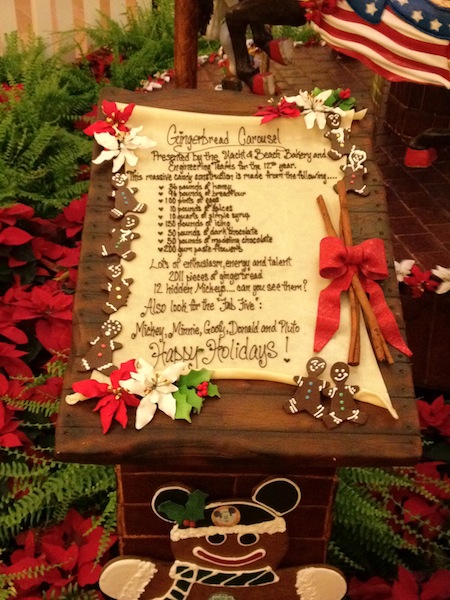 Gingerbread Carousel
Presented by the Yacht & Beach Bakery and
Engineering Teams for the 12TH year.
This massive candy construction is made from the following....
♥ 36 pounds of honey
♥ 96 pounds of bread flour
♥ 100 pints of eggs
♥ 10 pounds of spices
♥ 10 quarts of simple syrup
♥ 150 pounds of icing
♥ 50 pounds of dark chocolate
♥ 50 pounds of modeling chocolate
♥ 200 gum paste flowers
Lots of enthusiasm, energy and talent
2011 pieces of gingerbread
12 hidden Mickeys.... can you see them?
Also look for the "Fab Five":
Mickey, Minnie, Goofy, Donald and Pluto
Happy Holidays!